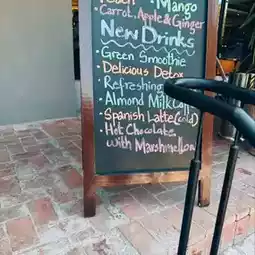 • Mango
• Carrot, Apple & Ginger
New Drinks
• Green Smoothie
• Delicious Detox
• Refreshing
• Almond Milk
• Spanish Latte (cold)
• Hot Chocolate
with Marshmellow